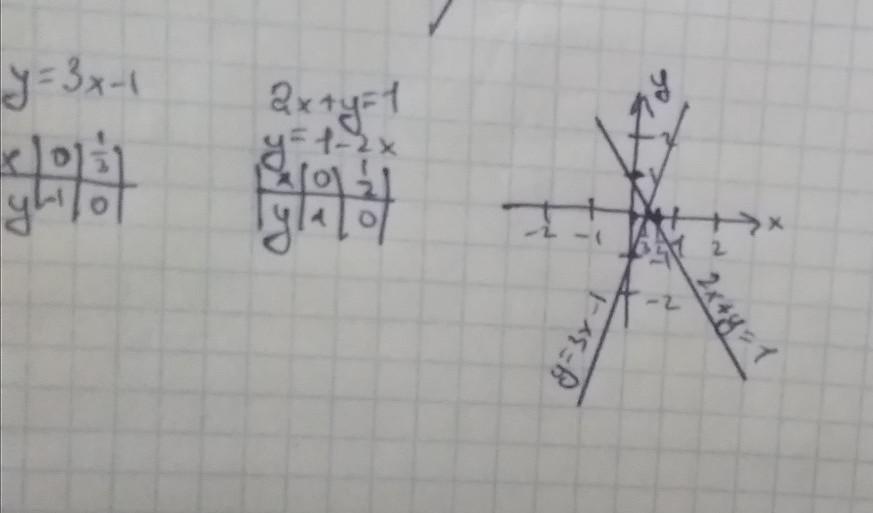 y=3x-1
x | 0 | 1/3
y | -1 | 0
2x+y=1
y=1-2x
x | 0 | 1/2
y | 1 | 0
y
2
1
x
-2 -1 1/3 1/2 1 2
-1
-2
y=3x-1
2x+y=1